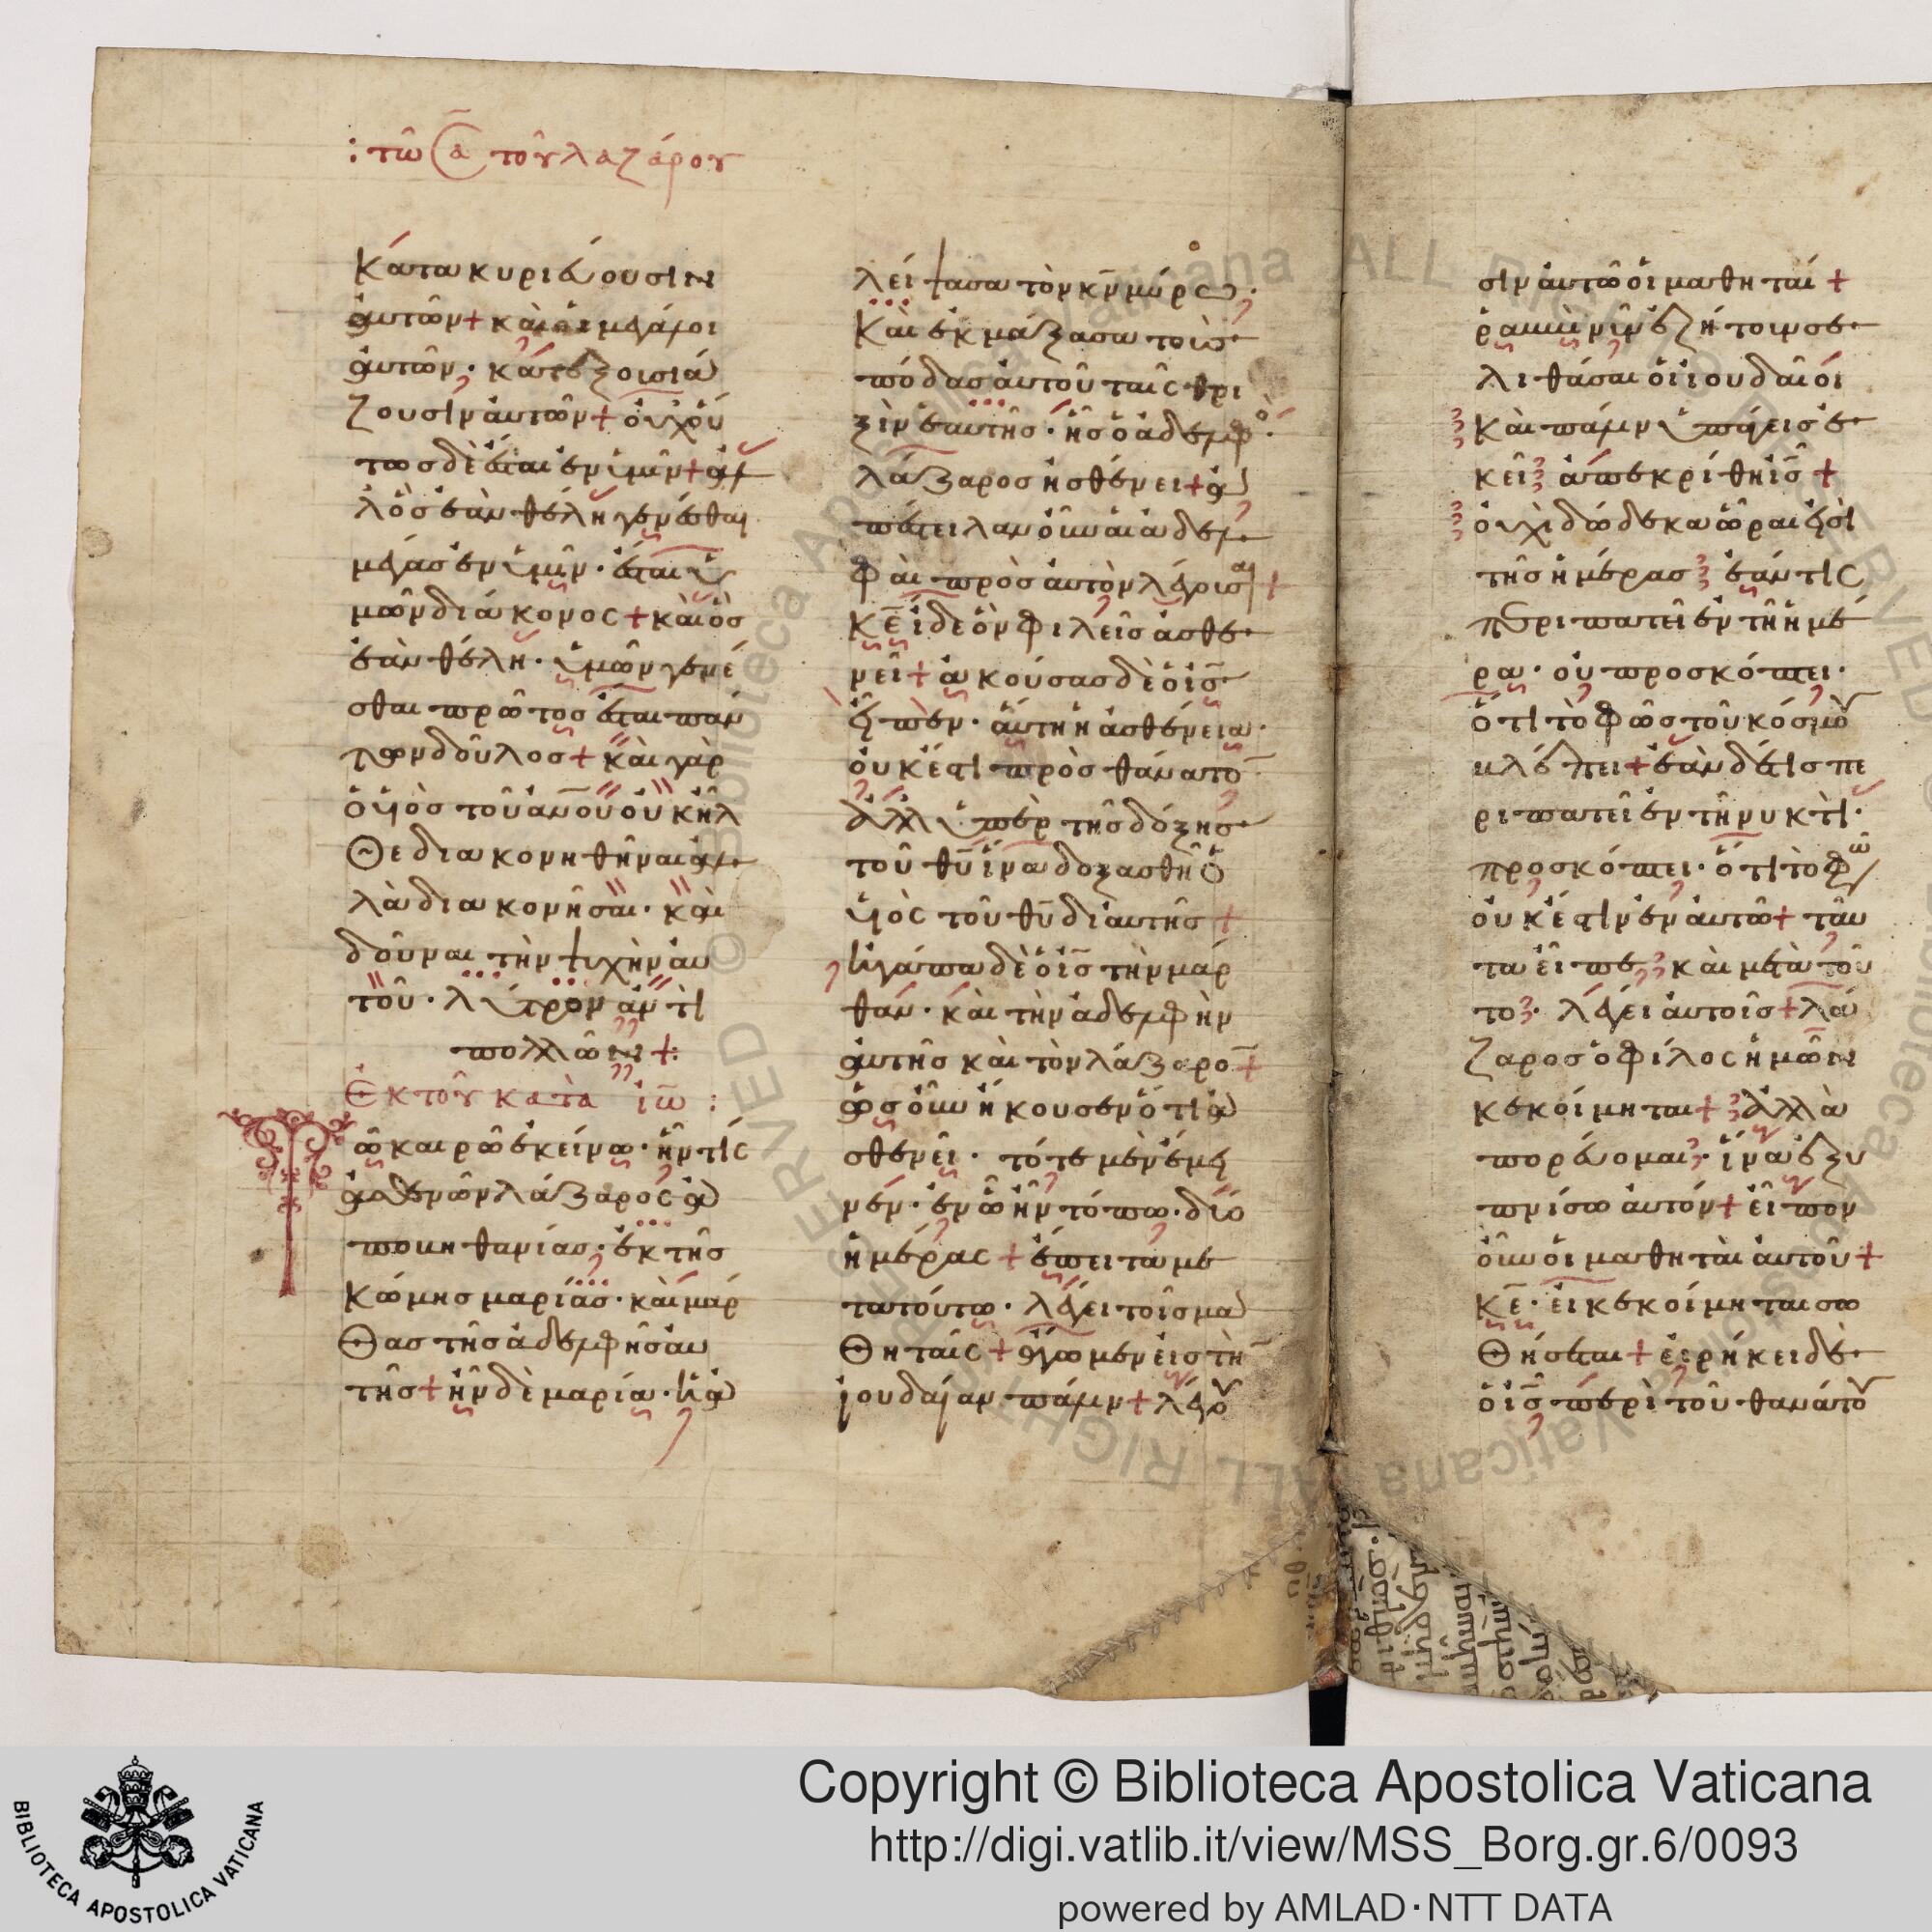 : τῶ Ϲα̅ τοῦ λαζάρου
κατακυριεύουσιν
ἀυτῶν + καὶ ὁι μεγάλοι
ἀυτῶν · κατεξουσιά
ζουσιν ἀυτῶν + ὀυχ ὁύ
τωσ δὲ ἔσται ἐν ὑμῖν + ἀλ
λ' ὃσ ἐὰν θέλη γενέσθαι
μέγασ ἐν ὑμῖν · ἔσται ὑ
μῶν διάκονος + καὶ ὃσ
ἐὰν θέλη · ὑμῶν γενέ
σθαι πρῶτοσ ἔσται πάν
των δοῦλοσ + καὶ γὰρ
ὁ υἱὸσ τοῦ ἀν̅ου οὐκ ἦλ
θε διακονηθῆναι ἀλ
λὰ διακονῆσαι · καὶ
δοῦναι τὴν ψυχὴν ἀυ
τοῦ · λύτρον ἀντὶ
πολλῶν +:
Ἐκ τοῦ κατὰ ἰω̅ :
Τῶ καιρῶ ἐκείνω · ἦν τις
ἀσθενῶν λάζαρος ἀ
πο βηθανίασ · ἐκ τῆσ
κώμησ μαρίασ · καὶ μάρ
θασ τῆσ ἀδελφῆσ ἀυ
τῆσ + ἦν δὲ μαρία · ἡ ἀ
λείψασα τὸν κν̅ μύρω ·
καὶ ἐκμάξασα τοὺσ
πόδασ ἀυτοῦ ταῖς θρι
ξὶν ἑαυτῆσ · ἧσ ὁ ἀδελφὸ ·
λάζαροσ ἠσθένει + ἀ
πέστειλαν οὖν αἱ ἀδελ
φαὶ πρὸσ ἀυτὸν λέγουσαι +
κε̅ ἴδε ὃν φιλεῖσ ἀσθε
νεῖ + ἀκούσασ δὲ ὁ ισ̅
εἶπεν · ἅυτη ἡ ἀσθένεια ·
οὐκ ἔστι πρὸσ θάνατο̅
ἀλλ' ὑπὲρ τῆσ δόξησ
τοῦ θυ̅ ἵνα δοξασθῆ ὁ
υἱὸς τοῦ θυ̅ δι ἀυτῆσ +
ἠγάπα δὲ ὁ ισ̅ τὴν μάρ
θαν · καὶ τὴν ἀδελφὴν
ἀυτῆσ καὶ τὸν λάζαρο̅ +
ὡσ οὖν ἤκουσεν ὅτι ἀ
σθενεῖ · τότε μὲν ἔμει
νεν · ἐν ὧ ἦν τόπω · δύο
ἡμέρας + ἔπειτα με
τα τούτω · λέγει τοῖσ μα
θηταῖς + ἄγωμεν εἰσ τὴ̅
ἰουδαίαν πάλιν + λέγου
σιν ἀυτῶ οἱ μαθηταί +
ῥαββὶ νῦν ἐζήτουν σε
λιθάσαι οἱ ἰουδαῖοι
καὶ πάλιν ὑπάγεισ ἐ
κεῖ ἀπεκρίθη ισ̅ +
ὀυχὶ δώδεκα ὧραι εἰσὶ
τῆσ ἡμέρασ ἐάν τις
περιπατεῖ ἐν τῆ ἡμέ
ρα · ὀυ προσκόπτει ·
ὅτι τὸ φῶσ τοῦ κόσμου
βλέπει + ἐὰν δέ τισ πε
ριπατεῖ ἐν τῆ νυκτὶ ·
προσκόπτει · ὅτι τὸ φῶ
ὀυκ ἔστιν ἐν ἀυτῶ + ταῦ
τα εἶπε, καὶ μετὰ τοῦ
το · λέγει ἀυτοῖσ + λά
ζαροσ ὁ φίλος ἡμῶν
κεκοίμηται + ἀλλὰ
πορεύομαι · ἵνα ἐξυ
πνίσω ἀυτόν + εἶπον
οὖν οἱ μαθηταὶ ἀυτοῦ +
κε̅ · ἐι κεκοίμηται σω
θήσεται + ἐιρήκει δὲ
ὁ ισ̅ περὶ τοῦ θανάτου
BIBLIOTECA APOSTOLICA VATICANA
Copyright © Biblioteca Apostolica Vaticana
http://digi.vatlib.it/view/MSS_Borg.gr.6/0093
powered by AMLAD·NTT DATA